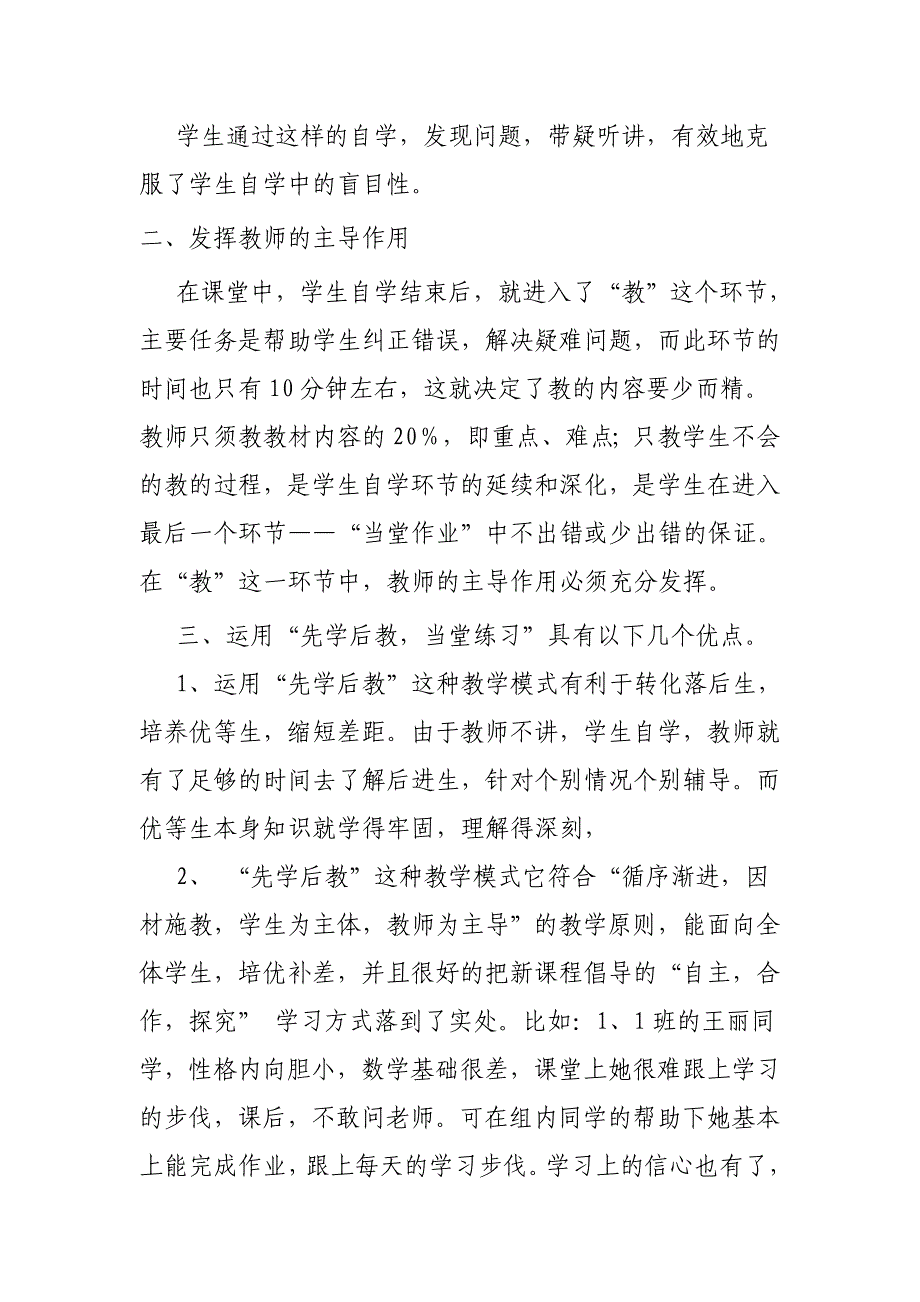 学生通过这样的自学，发现问题，带疑听讲，有效地克
服了学生自学中的盲目性。
二、发挥教师的主导作用
在课堂中，学生自学结束后，就进入了“教”这个环节，
主要任务是帮助学生纠正错误，解决疑难问题，而此环节的
时间也只有10分钟左右，这就决定了教的内容要少而精。
教师只须教教材内容的20%，即重点、难点；只教学生不会
的教的过程，是学生自学环节的延续和深化，是学生在进入
最后一个环节——“当堂作业”中不出错或少出错的保证。
在“教”这一环节中，教师的主导作用必须充分发挥。
三、运用“先学后教，当堂练习”具有以下几个优点。
1、运用“先学后教”这种教学模式有利于转化落后生，
培养优等生，缩短差距。由于教师不讲，学生自学，教师就
有了足够的时间去了解后进生，针对个别情况个别辅导。而
优等生本身知识就学得牢固，理解得深刻，
2、 “先学后教”这种教学模式它符合“循序渐进，因
材施教，学生为主体，教师为主导”的教学原则，能面向全
体学生，培优补差，并且很好的把新课程倡导的“自主，合
作，探究” 学习方式落到了实处。比如：1、1班的王丽同
学，性格内向胆小，数学基础很差，课堂上她很难跟上学习
的步伐，课后，不敢问老师。可在组内同学的帮助下她基本
上能完成作业，跟上每天的学习步伐。学习上的信心也有了，